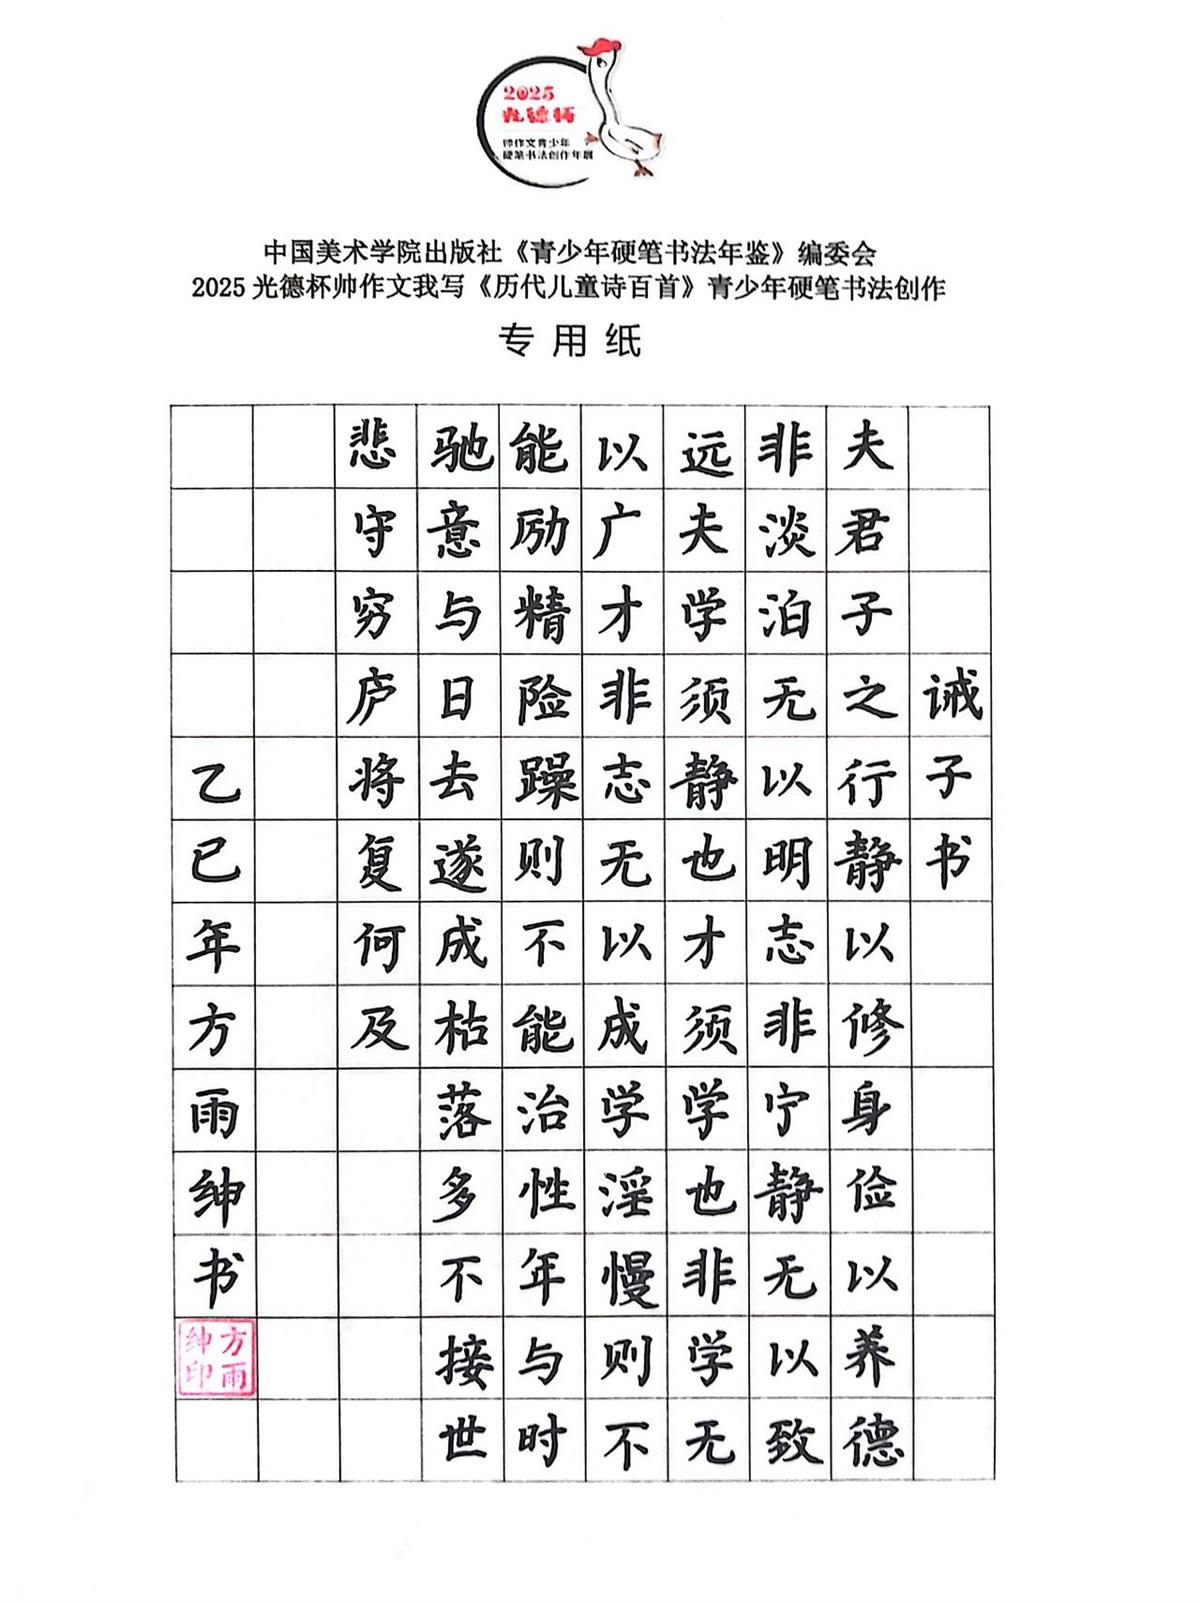 2025
光德杯
帅作文青少年
硬笔书法创作年展
中国美术学院出版社《青少年硬笔书法年鉴》编委会
2025光德杯帅作文我写《历代儿童诗百首》青少年硬笔书法创作
专用纸
诫子书
夫君子之行静以修身俭以养德
非淡泊无以明志非宁静无以致
远夫学须静也才须学也非学无
以广才非志无以成学淫慢则不
能励精险躁则不能治性年与时
驰意与日去遂成枯落多不接世
悲守穷庐将复何及
乙巳年方雨绅书
方雨
绅印